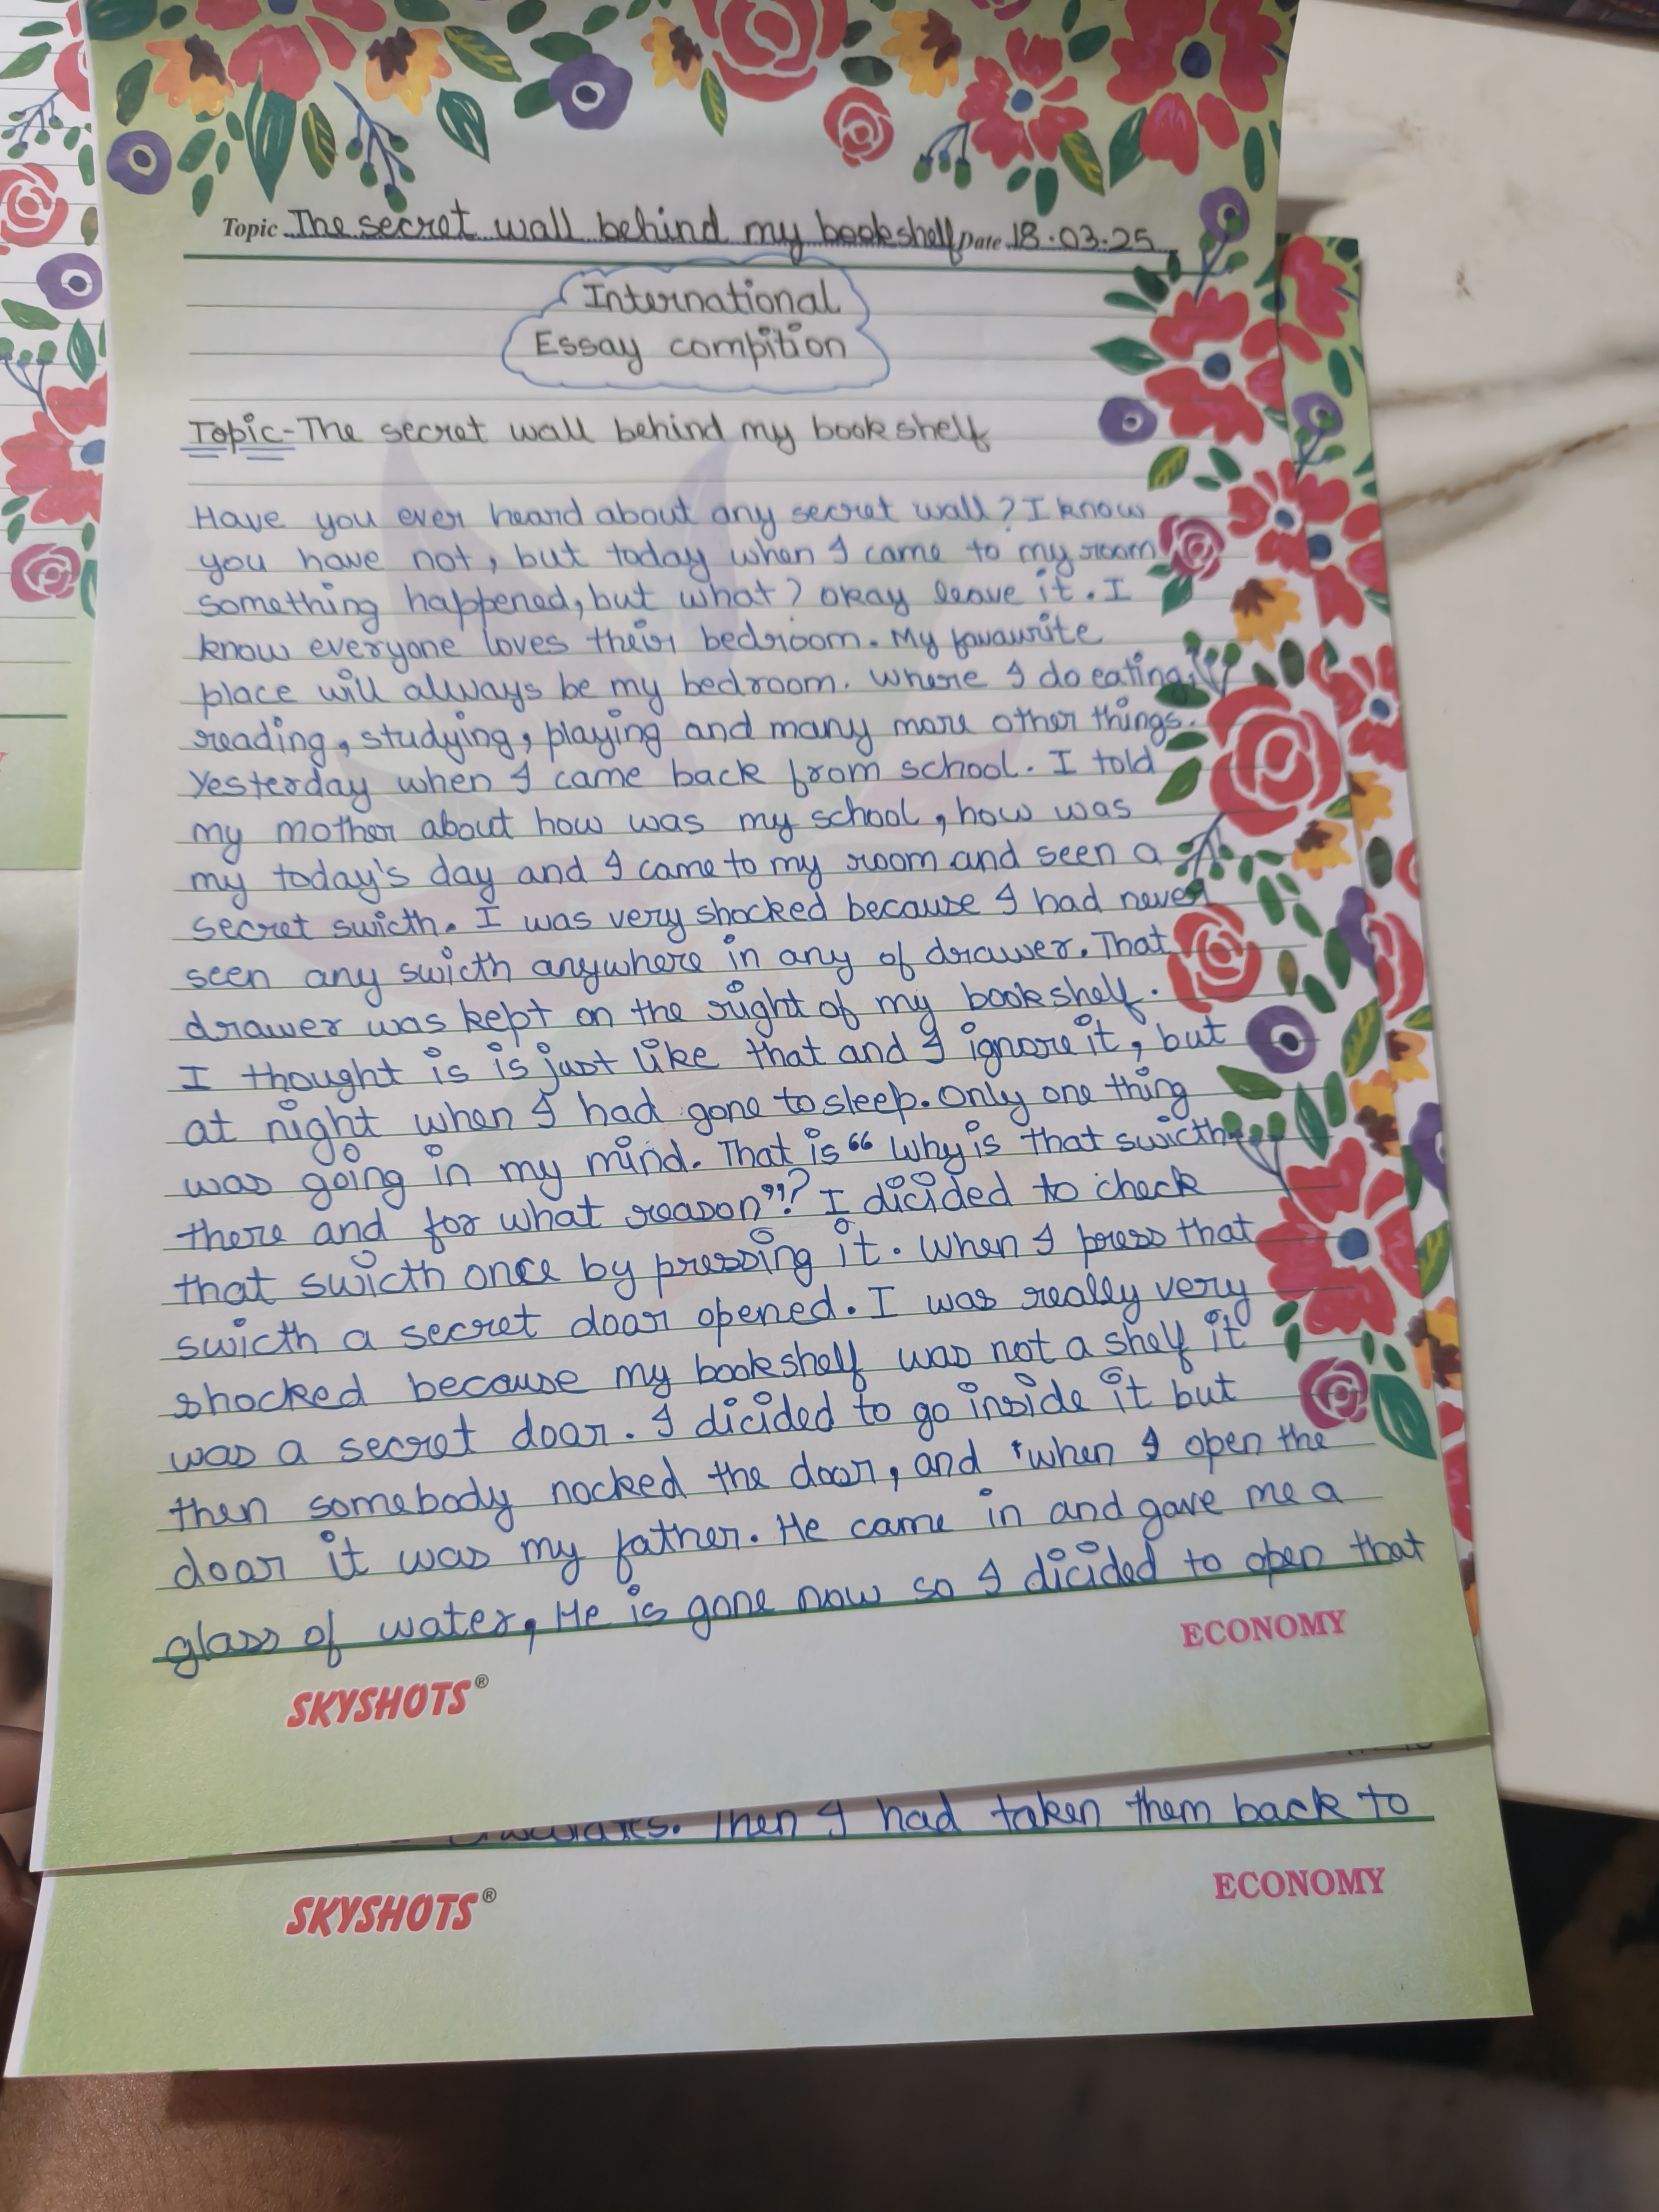 Topic The secret wall behind my bookshelf Date 18.03.25
International
Essay compition
Topic-The secret wall behind my bookshelf
Have you ever heard about any secret wall? I know
you have not, but today when I came to my room
something happened, but what? okay leave it. I
know everyone loves their bedroom. My favaurite
place will always be my bedroom. where I do eating,
reading, studying, playing and many more other things.
Yesterday when I came back from school. I told
my mother about how was my school, how was
my today's day and I came to my room and seen a
secret swicth. I was very shocked because I had never
seen any swicth anywhere in any of drawer. That
drawer was kept on the right of my bookshelf.
I thought is is just like that and I ignore it, but
at night when I had gone to sleep. Only one thing
was going in my mind. That is “ Why is that swicth
there and for what reason”? I dicided to check
that swicth once by pressing it. When I press that
swicth a secret doar opened. I was really very
shocked because my bookshelf was not a shelf it
was a secret doar. I dicided to go inside it but
then somebody nocked the door, and when I open the
doar it was my father. He came in and gave me a
glass of water, He is gone now so I dicided to open that
ECONOMY
SKYSHOTS®
Then I had taken them back to
ECONOMY
SKYSHOTS®